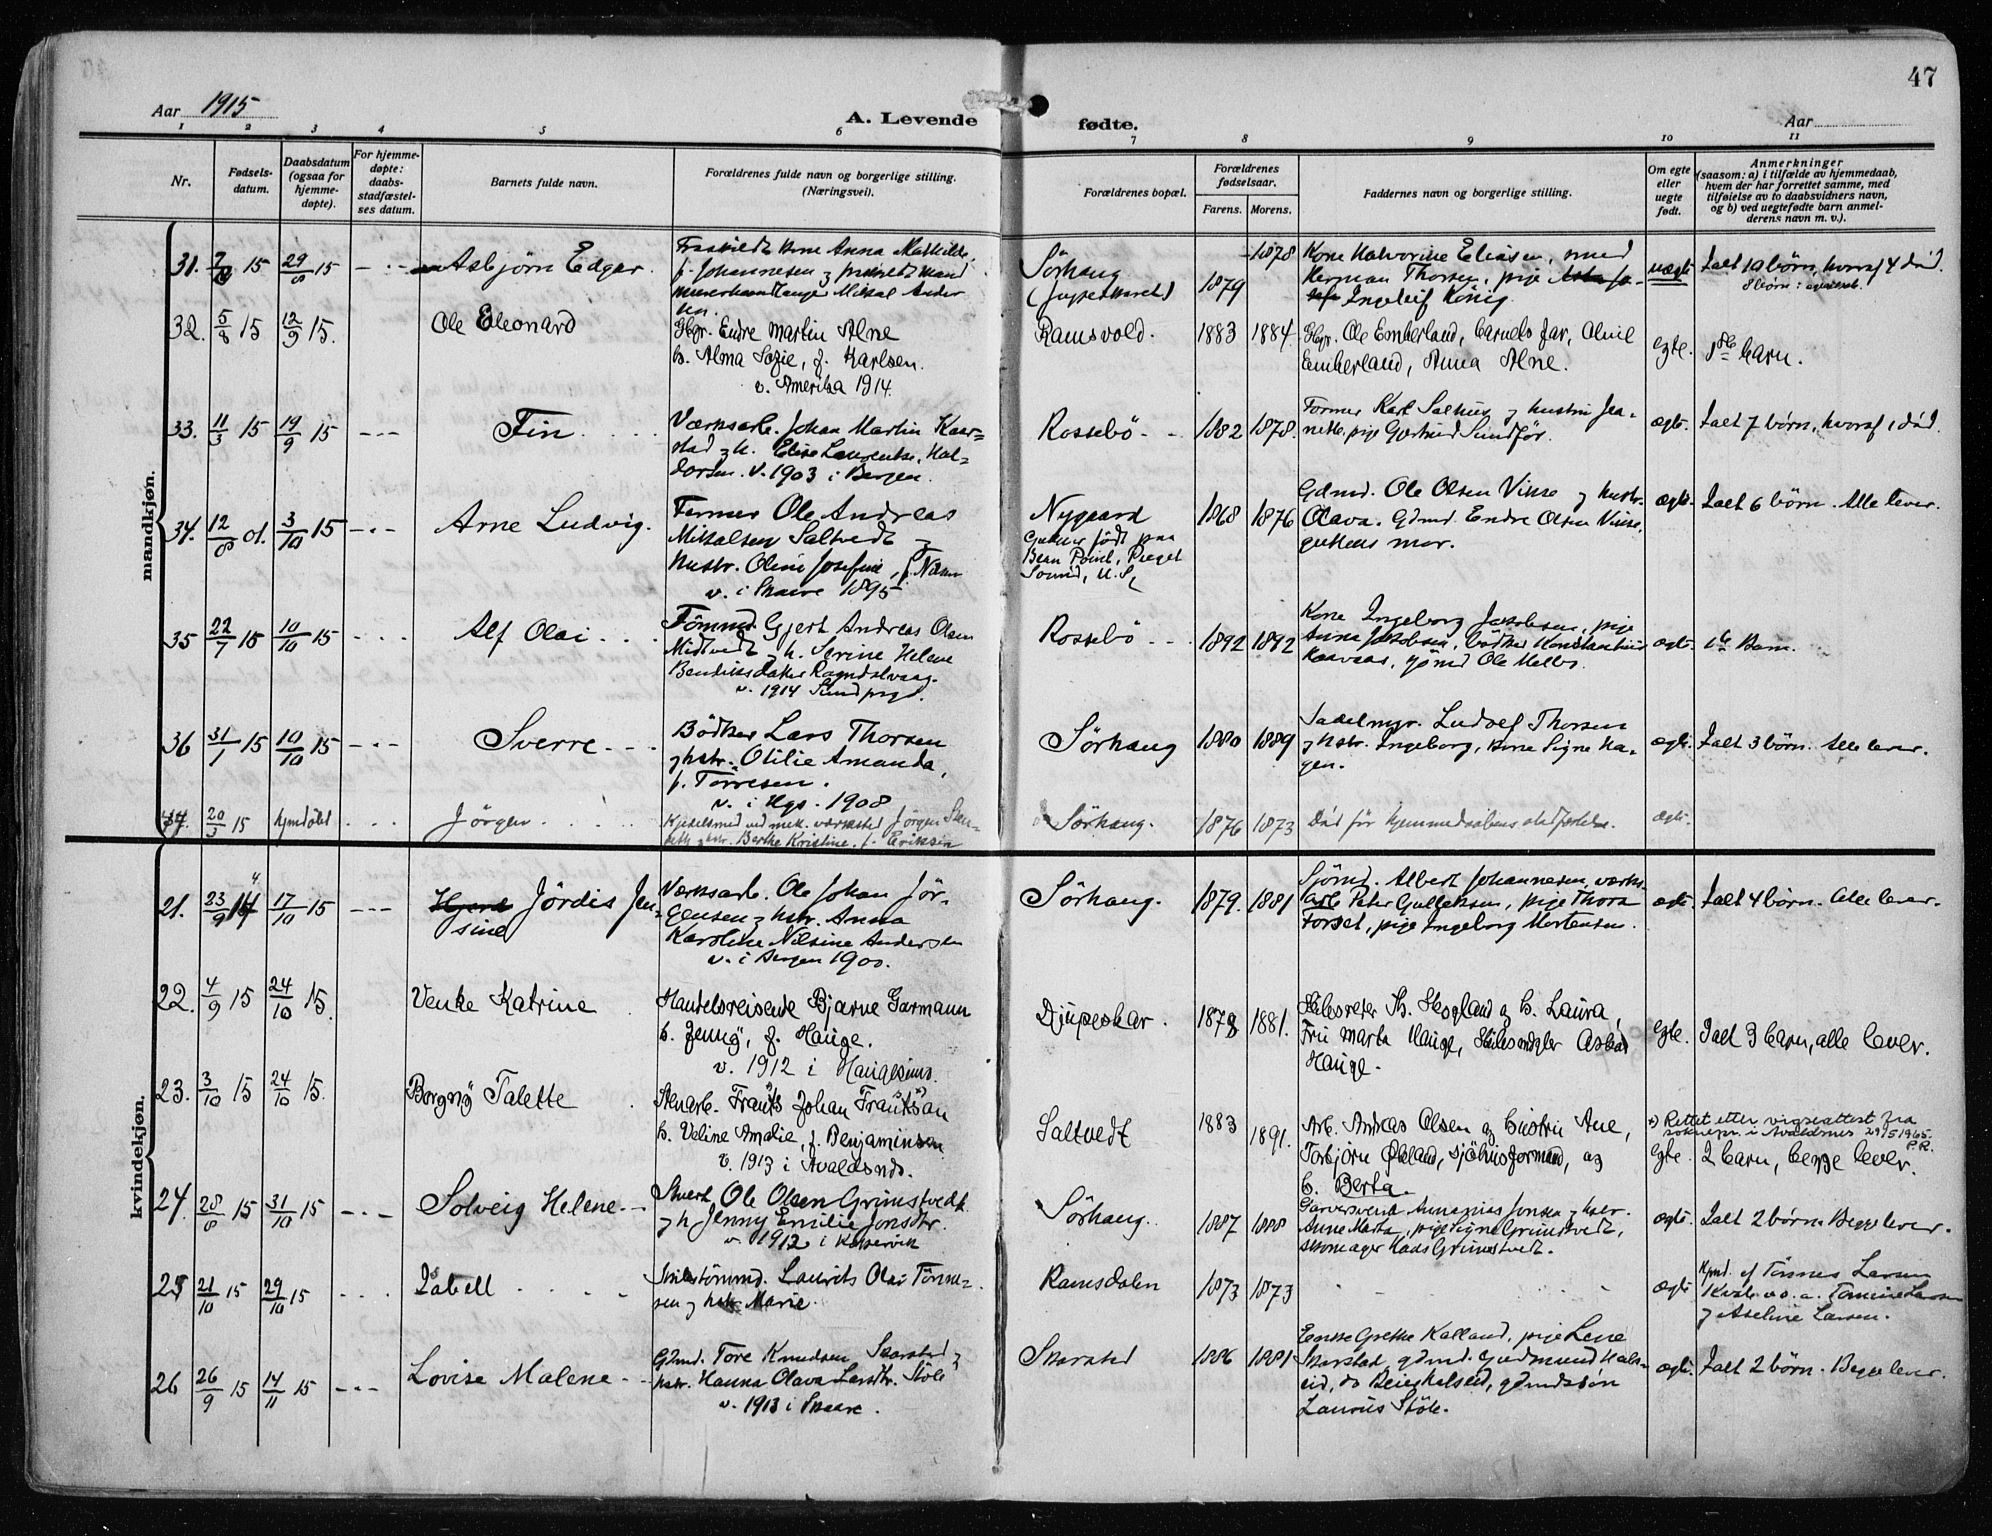 47
Aar 1915
A. Levende fødte.
Aar
1 2 3 4 5 6 7 8 9 10 11
Nr.
Fødsels-
datum.
Daabsdatum
(ogsaa for
hjemme-
døpte).
For hjemme-
døpte:
daabs-
stadfæstel-
ses datum.
Barnets fulde navn.
Forældrenes fulde navn og borgerlige stilling.
(Næringsvei).
Forældrenes bopæl.
Forældrenes
fødselsaar.
Farens. Morens.
Faddernes navn og borgerlige stilling.
Om egte
eller
uegte
født.
Anmerkninger
(saasom: a) i tilfælde av hjemmedaab,
hvem der har forrettet samme, med
tilføielse av to daabsvidners navn,
og b) ved uegtefødte barn anmel-
derens navn m. v.).
mandkjøn.
31. 15 29/8 15 Asbjørn Edgar.
Fraskildt kone Anna Mathilde,
f. Johannesen
Mikal Ander
sen.
Sörhaug
1879 1878
Kone Halvorine Eliasen, smed
Herman Thorsen, pige
Ingeleif König.
uægte
Ialt 10 børn, hvoraf 4 død.
32. 5/8 15 12/9 15. Ole Eleonard
Gbgr. Endre Martin Alne
h. Alma Sofie, f. Karlsen.
v. Amerika 1914.
Ramsvold. 1883 1884.
Gbgr. Ole Emberland, barnets far, Olul
Emberland, Anna Alne.
egte. 1ste barn.
33. 11/3 15 19/9 15 - - - Fin
Værksarb. Johan Martin Kaar-
stad og h. Elise Laurentse. Hal-
dorsen. v. 1903 i Bergen.
Rossebö - - 1882 1878.
Former Karl Salhus og hustru Jea-
nette, pige Gertrud Sundför.
ægte. Ialt 7 börn, hvoraf 1 död.
34. 12/8 d. 3/10 15 - - - Arne Ludvig.
Former Ole Andreas
Mikalsen Saltvedt og
hustr. Oline Josefine, f. Næss
v. i Skaare 1895
Nygaard
Gutten født paa
Bean Point, Puget
Sound, U. S.
1868 1876
Gdmd. Ole Olsen Vikse og hustr.
Olava. Gdmd. Endre Olsen Vikse,
guttens mor.
ægte. Ialt 6 börn. Alle lever.
35 22/7 15 10/10 15 - - - Alf Olai - - -
Tömmd. Gjert Andreas Olsen
Midtvedt og h. Serine Helene
Bendiksdatter Rogndalsvaag.
v. 1914 Sund prgd.
Rossebö - - - 1892 1892
Kone Ingeborg Jakobsen, pige
Anna Jakobsen, bödker Konstantius
Ole Melbö.
ægte. 1ste Barn.
36 31/7 15 10/10 15 - - - Sverre - - -
Bödker Lars Thorsen
og hstr. Otilie Amanda,
f. Torresen.
v. i Hgs. 1908
Sörhaug 1880 1889
Sadelmgr. Ludolf Thorsen
og hstr. Ingeborg, kone Signe Ha-
gen.
ægte. Ialt 3 börn. Alle lever.
37. 20/3 15 hjemdöbt . . . Jörgen
Kjedelsmed ved mek. værksted Jörgen Sten-
og hstr. Berthe Kristine. f. Eriksen
Sörhaug. 1876 1873 Död før hjemmedaabens stadfæstelse. ægte.
kvindekjøn.
21. 23/9 14 17/10 15 - - - Jördis Jen-
sine
Værksarb. Ole Johan Jör-
gensen og hstr. Anna
Karoline Nilsine Andersen
v. i Bergen 1900.
Sörhaug. 1879. 1881
Sjömd. Albert Johannesen, værks-
arb. Peter Gullaksen, pige Thora
Forset, pige Ingeborg Mortensen.
ægte. Ialt 4 börn. Alle lever.
22. 4/9 15 24/10 15. Venke Katrine
Handelsreisende Bjarne Garmann
h. Jenny, f. Hauge.
v. 1912 i Haugesund.
Djupeskar. 1878 1881.
Th. Skogland og h. Laura,
Fru Marta Hauge,
Hauge.
egte. Ialt 3 barn, alle lever.
23. 3/10 15 24/10 15. Borgny Talette
Stenarb. Frants Johan Frantsan
h. Veline Amalie, f. Benjaminsen
v. 1913 i Avaldsnes.
Saltvedt 1883 1891.
Arb. Andreas Olsen og hustru Ane,
Torbjørn Økland, sjöhusformand, og
h. Berta.
egte.
x) Rettet etter vigselattest fra
soknepr. i Avaldsnes 29/5 1965.
P.R.
2 barn, begge lever.
24. 28/8 15 31/10 15 - - - Solveig Helene - -
Ole Olsen Grimstvedt
og h. Jenny Emilie Jonsdtr.
v. 1912 i Kopervik
Sörhaug. 1887 1888
Garversvend Annanias Jonsen og hstr.
Anne Marta, pige Signe Grimstvedt,
skomager Mads Grimstvedt.
ægte. Ialt 2 börn. Begge lever.
25 21/10 15 29/10 15 . . . Isabell
Laurits Olai Tönne-
sen og hstr. Marie.
Ramsdalen 1873 1873
ægte
Hjmd. af Tönnes Larsen
Kvale o. o. a. Tomine Larsen
og Aseline Larsen.
26 26/9 15 14/11 15 - - - Lovise Malene - -
Gdmd. Tore Knudsen Skarstad og
hstr. Hanna Olava Larsdtr. Stöle
v. 1913 i Skaare.
Skarstad 1886 1881
Enke Grethe Kalland, pige Lene
Skarstad, gdmd. Gudmund Hals-
eid, do Halseid, gdmdssön
Laurits Stöle.
ægte. Ialt 2 börn. Begge lever.